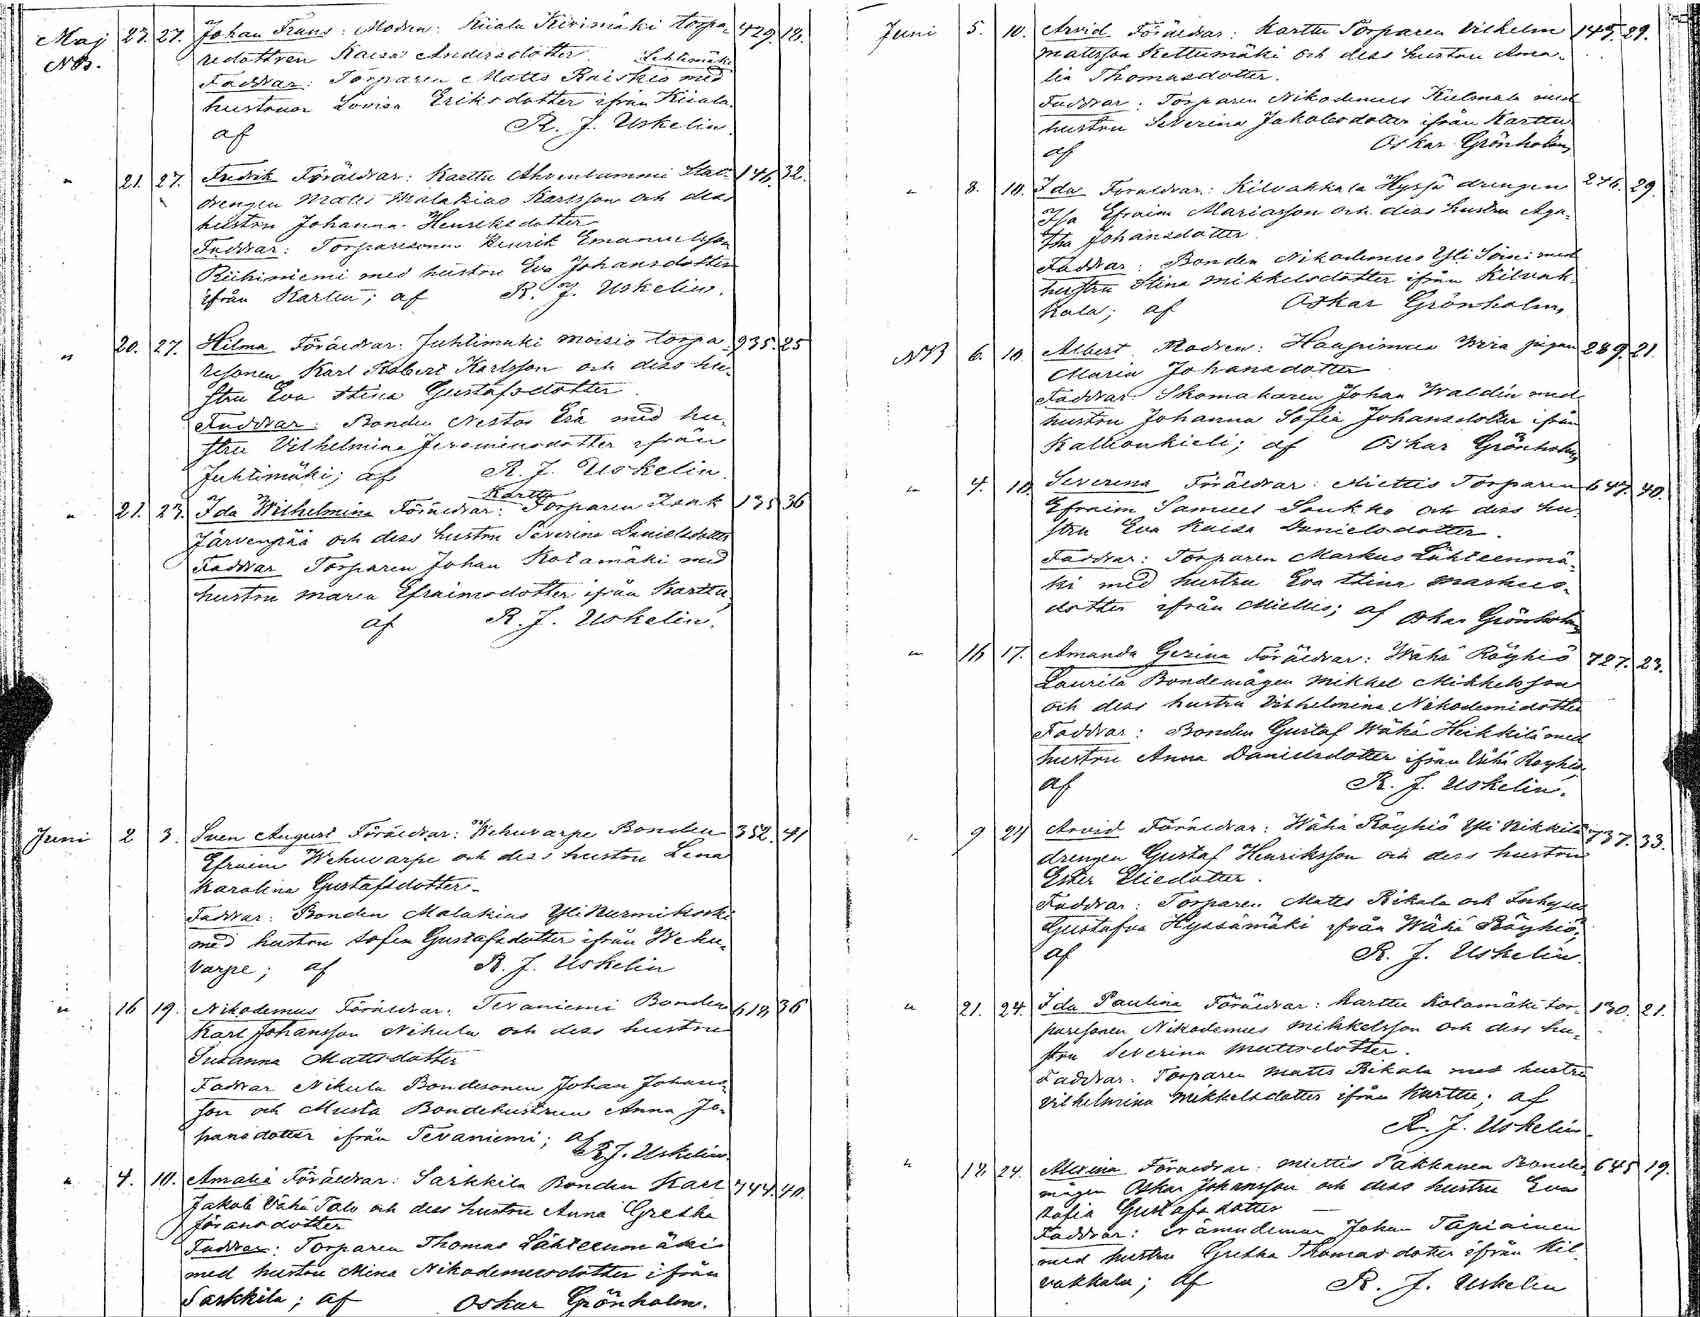 Maj 27. 27. Johan Frans: Modren: Kiiala Kivimäki torpa- 429. 18.
NB. redottren Kaisa Andersdotter
Faddrar: Torparen Matts Raiskio med
hustrun Lovisa Eriksdotter ifrån Kiiala.
af R. J. Uskelin.
" 21. 27. Fredrik Föräldrar: Karttu Ahvenlammi Stat- 146. 32.
drengen Matts Malakias Karlsson och dess
hustru Johanna Henriksdotter
Faddrar: Torparesonen Henrik Emanuelsson
Riihiniemi med hustru Eva Johansdotter
ifrån Karttu; af R. J. Uskelin.
" 20. 27. Hilma Föräldrar: Juhtimäki moisio torpa- 935. 25
resonen Karl Robert Karlsson och dess hu-
stru Eva Stina Gustafsdotter
Faddrar: Bonden Nestor Erä med hu-
stru Vilhelmina Jeremiasdotter ifrån
Juhtimäki; af R. J. Uskelin.
Karttu
" 21. 23. Ida Wilhelmina Föräldrar: Torparen Isak 135 36
Järvenpää och dess hustru Severina Danielsdotter
Faddrar Torparen Johan Kotamäki med
hustru Maria Efraimsdotter ifrån Karttu,
af R. J. Uskelin.
Juni 2 3. Sven August Föräldrar: Wehuvarpe Bonden 352. 41
Efraim Wehuvarpe och dess hustru Lena
Karolina Gustafsdotter.
Faddrar: Bonden Malakias Yli Nurmikoski
med hustru Sofia Gustafsdotter ifrån Wehu-
varpe; af R. J. Uskelin
" 16 19. Nikodemus Föräldrar: Tevaniemi Bonden 618. 36
Karl Johansson Nikula och dess hustru
Susanna Mattsdotter
Faddrar Nikula Bondesonen Johan Johans-
son och Musta Bondehustrun Anna Jo-
hansdotter ifrån Tevaniemi; af
R. J. Uskelin.
" 4. 10. Amalia Föräldrar: Sarkkila Bonden Karl 744. 40.
Jakob Vähä Talo och dess hustru Anna Greta
Göransdotter
Faddrar: Torparen Thomas Lähteenmäki
med hustru Mina Nikodemusdotter ifrån
Sarkkila; af Oskar Grönholm.
Juni 5. 10. Arvid Föräldrar: Karttu Torparen Vilhelm 145. 29.
Mattsson Kettumäki och dess hustru Ama-
lia Thomasdotter.
Faddrar: Torparen Nikodemus Kulmala med
hustru Severina Jakobsdotter ifrån Karttu
af Oskar Grönholm,
" 8. 10. Ida Föräldrar: Kilvakkala Hyssjö drengen 276. 29.
Isa Efraim Mariasson och dess hustru Aga-
tha Johansdotter
Faddrar: Bonden Nikodemus Yli Sorri med
hustru Stina Mikkelsdotter ifrån Kilvak-
kala; af Oskar Grönholm,
NB 6. 10. Albert Modren: Haapimaa pigan 289. 21.
Maria Johansdotter
Faddrar: Skomakaren Johan Waldén med
hustru Johanna Sofia Johansdotter ifrån
Kallionkieli; af Oskar Grönholm,
" 4. 10. Severina Föräldrar: Miettis Torparen 647. 40.
Efraim Samuel Soukko och dess hu-
stru Eva Kaisa Danielsdotter.
Faddrar: Torparen Markus Lähteenmä-
ki med hustru Eva Stina Markus-
dotter ifrån Miettis; af Oskar Grönholm,
" 16 17. Amanda Gezina Föräldrar: Wähä Röyhiö 727. 23.
Laurila Bondemågen Mikkel Mikkelsson
och dess hustru Vilhelmina Nikodemidotter
Faddrar: Bonden Gustaf Wähä Heikkilä med
hustru Anna Danielsdotter ifrån Vähä Röyhiö,
af R. J. Uskelin.
" 9 24 Arvid Föräldrar: Wähä Röyhiö Yli Nikkilä 737. 33.
drengen Gustaf Henriksson och dess hustru
Ester Eliedotter.
Faddrar: Torparen Matts Rikala och Inhyses
Gustafva Hyssämäki ifrån Wähä Röyhiö;
af R. J. Uskelin.
" 21. 24. Ida Paulina Föräldrar: Karttu Kotamäki tor- 130. 21.
paresonen Nikodemus Mikkelsson och dess hu-
stru Severina Mattsdotter.
Faddrar: Torparen Matts Rikala med hustru
Vilhelmina Mikkelsdotter ifrån Karttu; af
R. J. Uskelin
" 18. 24. Alexina Föräldrar: Miettis Pakkanen Bonde- 645 19.
mågen Oskar Johansson och dess hustru Eva
Sofia Gustafsdotter
Faddrar: Johan Tapiainen
med hustru Greta Thomasdotter ifrån Kil-
vakkala; af R. J. Uskelin